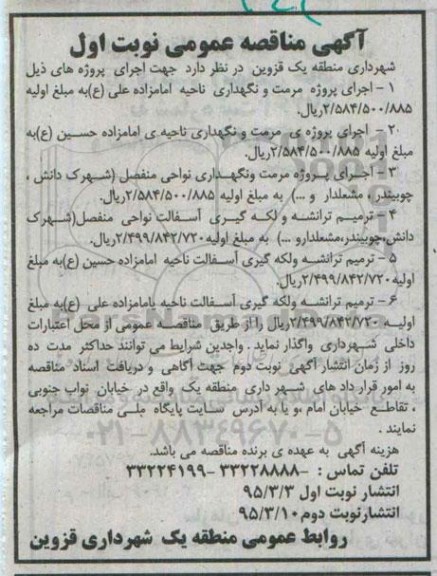 آگهی مناقصه عمومی نوبت اول
شهرداری منطقه یک قزوین در نظر دارد جهت اجرای پروژه های ذیل
۱ – اجرای پروژه مرمت و نگهداری ناحیه امامزاده علی (ع)به مبلغ اولیه
۲/۵۸۴/۵۰۰/۸۸۵ریال.
۲ – اجرای پروژه ی مرمت و نگهداری ناحیه ی امامزاده حسین (ع)به
مبلغ اولیه ۲/۵۸۴/۵۰۰/۸۸۵ریال.
۳ – اجرای پروژه مرمت ونگهداری نواحی منفصل (شهرک دانش ،
چوبیندر ، مشعلدار و ...) به مبلغ اولیه ۲/۵۸۴/۵۰۰/۸۸۵ریال.
۴ – ترمیم ترانشه و لکه گیری آسفالت نواحی منفصل(شهرک
دانش،چوبیندر،مشعلدارو ...) به مبلغ اولیه۲/۴۹۹/۸۴۲/۷۲۰ریال.
۵ – ترمیم ترانشه ولکه گیری آسفالت ناحیه امامزاده حسین (ع)به مبلغ
اولیه ۲/۴۹۹/۸۴۲/۷۲۰ریال.
۶ – ترمیم ترانشه ولکه گیری آسفالت ناحیه یامامزاده علی (ع)به مبلغ
اولیه ۲/۴۹۹/۸۴۲/۷۲۰ریال را از طریق مناقصه عمومی از محل اعتبارات
داخلی شهرداری واگذار نماید . واجدین شرایط می توانند حداکثر مدت ده
روز از زمان انتشار آگهی نوبت دوم جهت آگاهی و دریافت اسناد مناقصه
به امور قرار داد های شهر داری منطقه یک واقع در خیابان نواب جنوبی
، تقاطع خیابان امام ،و یا به آدرس سایت پایگاه ملی مناقصات مراجعه
نمایند .
هزینه آگهی به عهده ی برنده مناقصه می باشد.
تلفن تماس : ۳۳۲۲۸۸۸۸– ۳۳۲۲۴۱۹۹
انتشار نوبت اول ۹۵/۳/۳
انتشارنوبت دوم۹۵/۳/۱۰
روابط عمومی منطقه یک شهرداری قزوین
ParsNamadData
۰۲۱-۸۸۳۴۹۶۷۰-۵